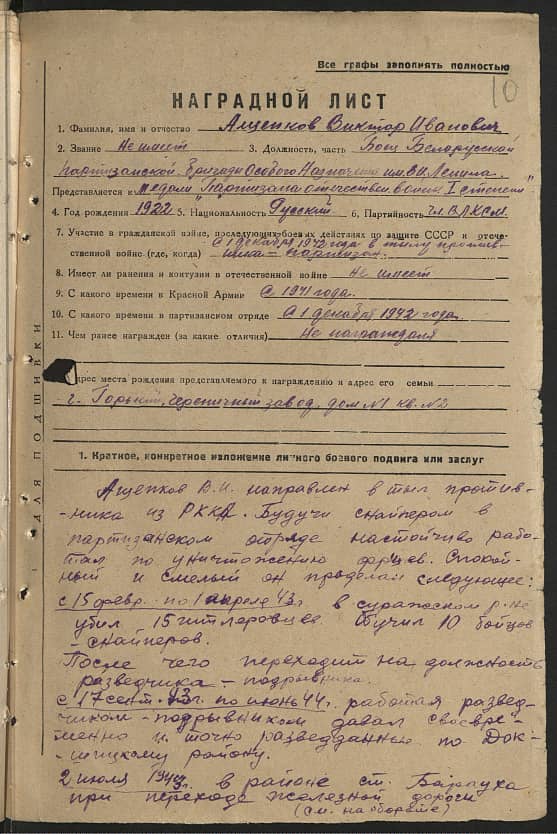 Все графы заполнять полностью
10
НАГРАДНОЙ ЛИСТ
1. Фамилия, имя и отчество Ащепков Виктор Иванович
2. Звание Не имеет 3. Должность, часть Боец Белорусской
партизанской бригады Особого Назначения им. В.И. Ленина.
Представляется к медали "Партизана отечествен. войны I степени"
4. Год рождения 1922 5. Национальность Русский 6. Партийность Чл. ВЛКСМ.
7. Участие в гражданской войне, последующих боевых действиях по защите СССР и отече-
ственной войне (где, когда) С 1 декабря 1942 года в тылу против-
ника - партизан.
8. Имеет ли ранения и контузии в отечественной войне Не имеет
9. С какого времени в Красной Армии С 1941 года.
10. С какого времени в партизанском отряде С 1 декабря 1942 года.
11. Чем ранее награжден (за какие отличия) Не награждался
Адрес места рождения представляемого к награждению и адрес его семьи
г. Горький, Черепичный завод, дом №1 кв. №2
ДЛЯ ПОДШИВКИ
1. Краткое, конкретное изложение личного боевого подвига или заслуг
Ащепков В.И. направлен в тыл против-
-ника из РККА. Будучи снайпером в
партизанском отряде настойчиво рабо-
тал по уничтожению фрицев. Спокой-
ный и смелый он проделал следующее:
с 15 февр. по 1 апреля 43 г. в суражском р-не
убил 15 гитлеровцев. Обучил 10 бойцов
-снайперов.
После чего переходит на должность
разведчика - подрывника.
с 17 сент. 43 г. по июнь 44 г. работая развед-
чиком - подрывником давал своевре-
менно и точно разведданные по Док-
-шицкому району.
2 июля 1944 г. в районе ст.
при переходе железной дороги
(см. на обороте)